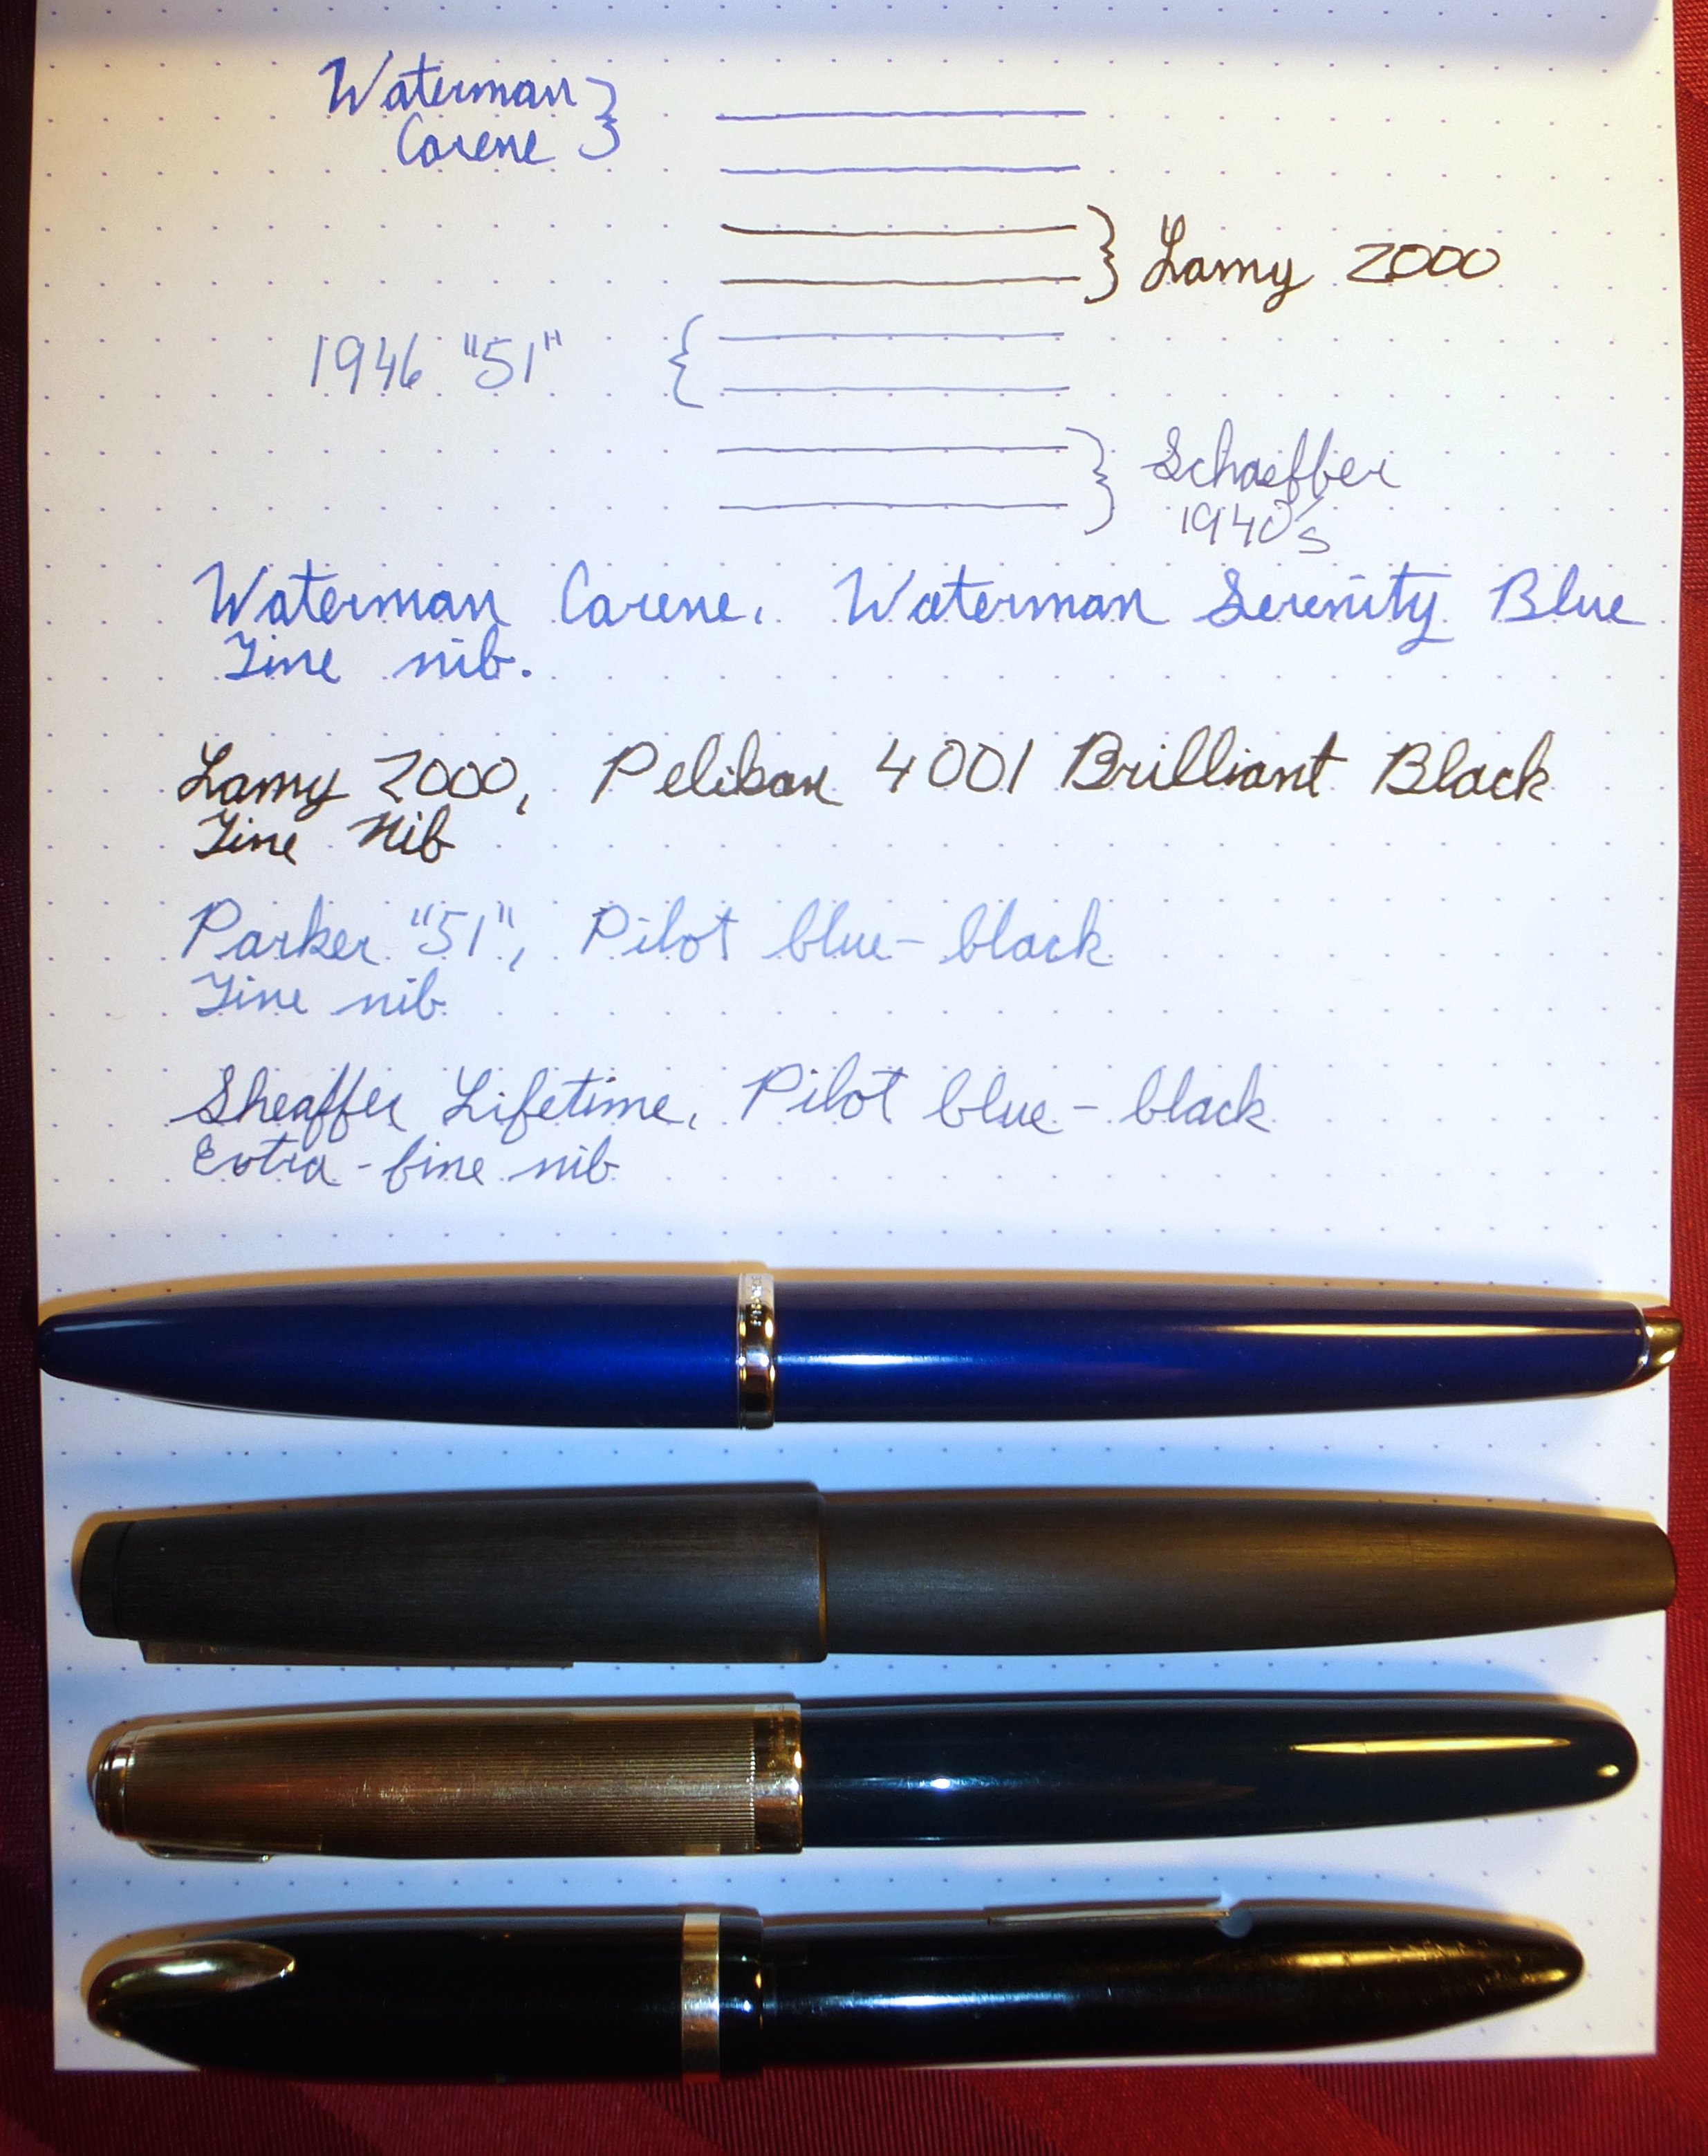 Waterman
Carene
Lamy 2000
1946 "51"
Schaeffer
1940's
Waterman Carene. Waterman Serenity Blue
Fine nib.
Lamy 2000, Pelikan 4001 Brilliant Black
Fine Nib
Parker "51", Pilot blue-black
Fine nib
Sheaffer Lifetime, Pilot blue-black
Extra-fine nib